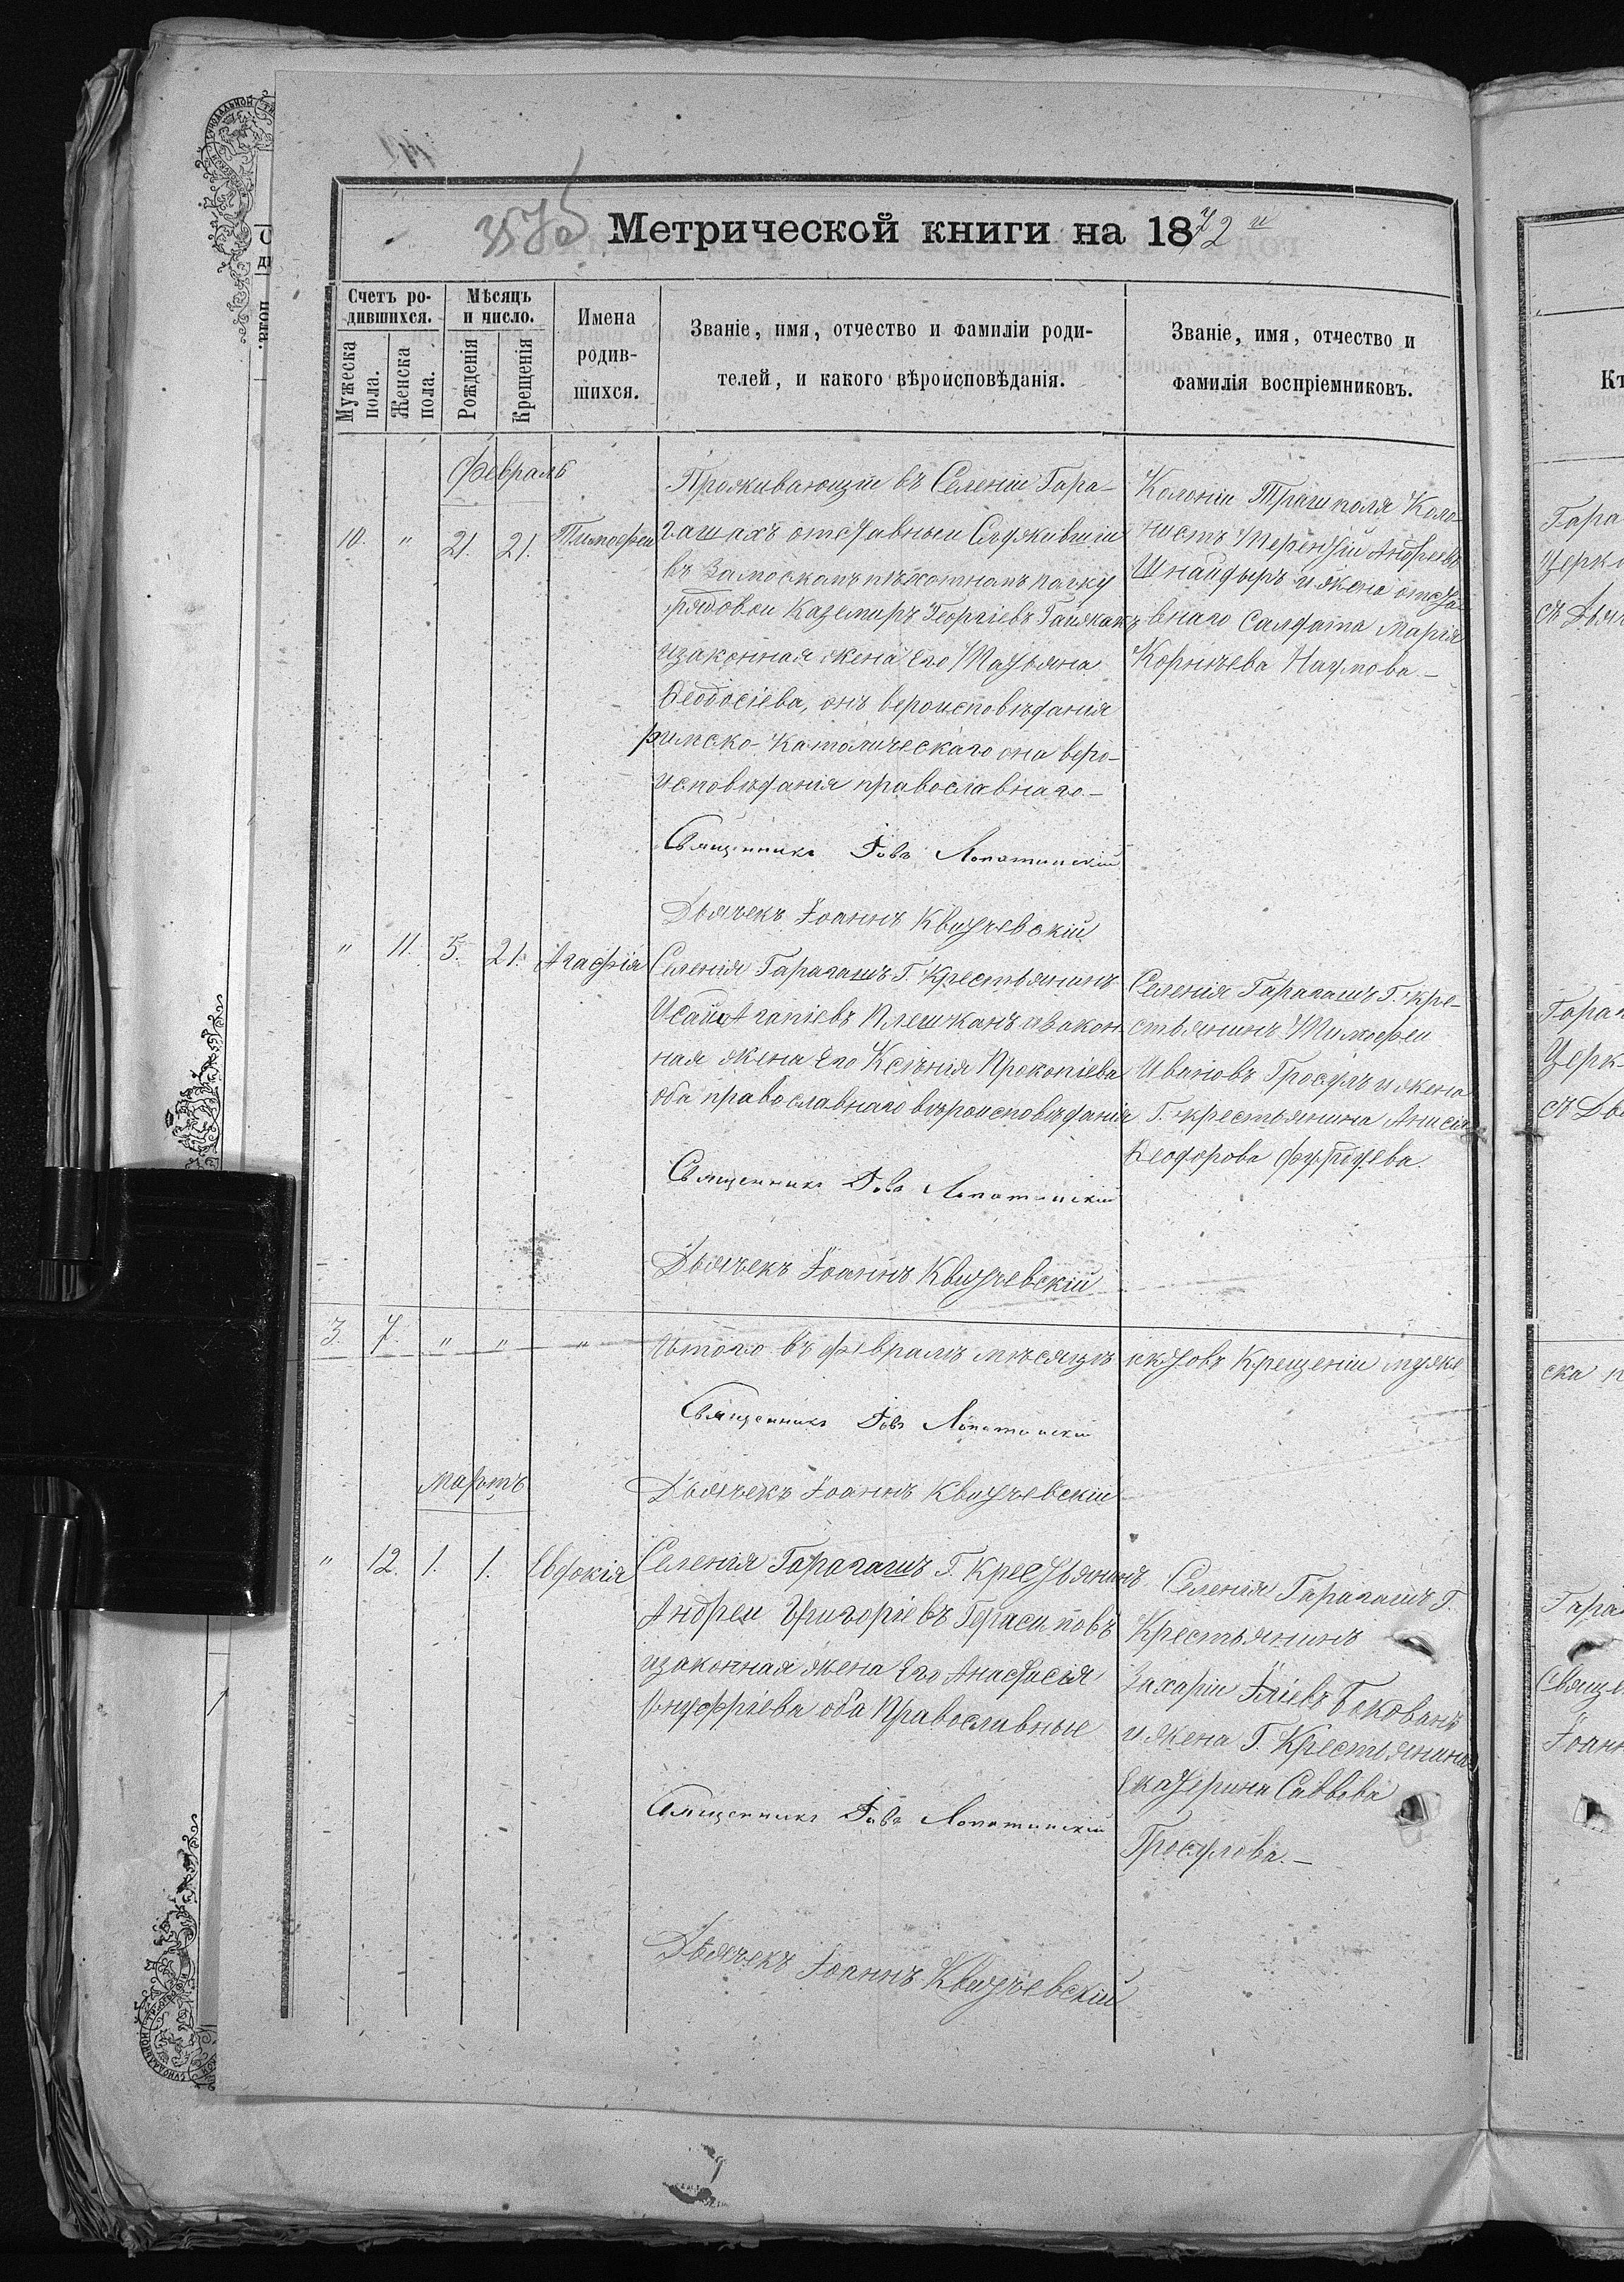 Метрической книги на 1872 и
Счетъ ро-
дившихся.
Мужеска
пола.
Женска
пола.
Мѣсяцъ
и число.
Рожденія
Крещенія
Имена
родив-
шихся.
Званіе, имя, отчество и фамиліи роди-
телей, и какого вѣроисповѣданія.
Званіе, имя, отчество и
фамилія воспріемниковъ.
Февраль
10. " 21. 21. Тимофеи
Проживающіи въ Селеніи Гара-
гашахъ отставныи Служившіи
въ Замоскамъ пѣхотнамъ палку
рядовои Каземиръ Георгіевъ
изаконная жена Его Татьяна
Ѳеодосіева, онъ вероисповѣданія
римско-Католическаго она веро-
исповѣданія православнаго-
Священникъ Іовъ Лопатинскій
Дьячекъ Іоаннъ Квитчевскій
Колоніи Коло-
нистъ Терентій Андреевъ
Шнайдыръ и жена отста
внаго Салдата Марія
Корнѣева Наумова-
" 11. 5. 21. Агафія
Селенія Гарагашъ Г. Крестьянинъ
Исаій Агапіевъ Плешканъ изакон
ная жена Его Ксѣнія Прокопіева
оба православнаго вѣроисповѣданія
Священникъ Іовъ Лопатинскій
Дьячекъ Іоаннъ Квитчевскій
Селенія Гарагашъ Г. кре-
стьянинъ Тимофеи
Ивановъ Гросулъ и жена
Г. крестьянина Анисія
Ѳеодорова
3. 7. " " "
Итого въ февралѣ мѣсяцѣ Крещеніи муже
Священникъ Іовъ Лопатинскій
Дьячекъ Іоаннъ Квитчевскій
мартъ
" 12. 1. 1. Евдокія
Селенія Гарагашъ Г. Крестьянинъ
Андреи Григоріевъ Герасимовъ
изаконная жена Его Анастасія
Онуфріева оба Православные
Священникъ Іовъ Лопатинскій
Дьячекъ Іоаннъ Квитчевскій
Селенія Гарагашъ Г.
Крестьянинъ
Захаріи Иліевъ Бокованъ
и жена Г. Крестьянина
Екатерина Саввева
Гросулова.-